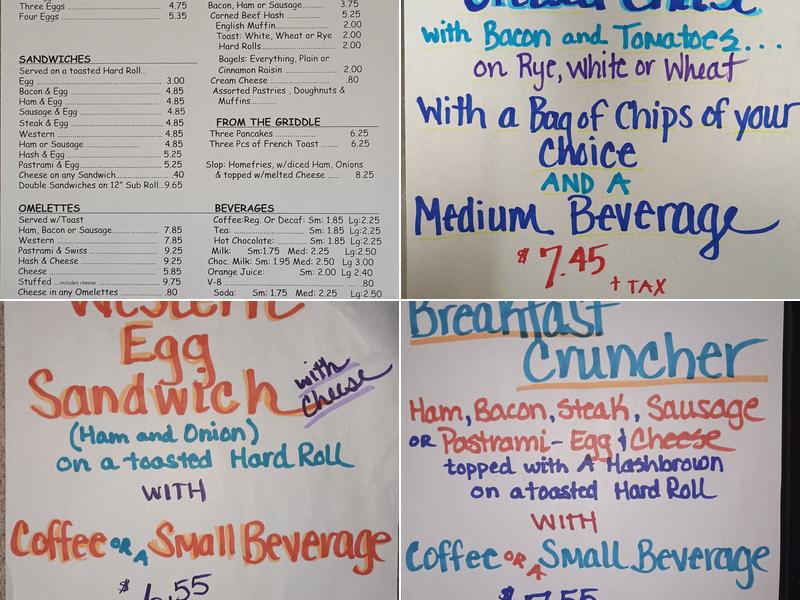 Three Eggs 4.75
Four Eggs ............ 5.35
SANDWICHES
Served on a toasted Hard Roll...
Egg ............ 3.00
Bacon & Egg ............ 4.85
Ham & Egg ............ 4.85
Sausage & Egg ............ 4.85
Steak & Egg ............ 4.85
Western ............ 4.85
Ham or Sausage ............ 4.85
Hash & Egg ............ 5.25
Pastrami & Egg ............ 5.25
Cheese on any Sandwich ............ .40
Double Sandwiches on 12" Sub Roll...9.65
OMELETTES
Served w/Toast
Ham, Bacon or Sausage ............ 7.85
Western ............ 7.85
Pastrami & Swiss ............ 9.25
Hash & Cheese ............ 9.25
Cheese ............ 5.85
Stuffed ....includes cheese ............ 9.75
Cheese in any Omelettes ............ .80
Bacon, Ham or Sausage ............ 3.75
Corned Beef Hash ............ 5.25
English Muffin ............ 2.00
Toast: White, Wheat or Rye 2.00
Hard Rolls ............ 2.00
Bagels: Everything, Plain or
Cinnamon Raisin ............ 2.00
Cream Cheese ............ .80
Assorted Pastries , Doughnuts &
Muffins............
FROM THE GRIDDLE
Three Pancakes ............ 6.25
Three Pcs of French Toast ............ 6.25
Slop: Homefries, w/diced Ham, Onions
& topped w/melted Cheese ...... 8.25
BEVERAGES
Coffee:Reg. Or Decaf: Sm: 1.85 Lg:2.25
Tea: ............ Sm: 1.85 Lg:2.25
Hot Chocolate: ............ Sm: 1.85 Lg:2.25
Milk: Sm:1.75 Med: 2.25 Lg:2.50
Choc. Milk: Sm: 1.95 Med: 2.50 Lg 3.00
Orange Juice: Sm: 2.00 Lg 2.40
V-8 ............ .80
Soda: Sm: 1.75 Med: 2.25 Lg:2.50
Cheese
with Bacon and Tomatoes...
on Rye, White or Wheat
With a Bag of Chips of your
Choice
AND A
Medium Beverage
$7.45
+ TAX
Western
Egg
Sandwich with
Cheese
(Ham and Onion)
on a toasted Hard Roll
WITH
Coffee OR A Small Beverage
$6.55
Breakfast
Cruncher
Ham, Bacon, Steak, Sausage
OR Pastrami - Egg & Cheese
topped with A Hashbrown
on a toasted Hard Roll
WITH
Coffee OR A Small Beverage
$7.55